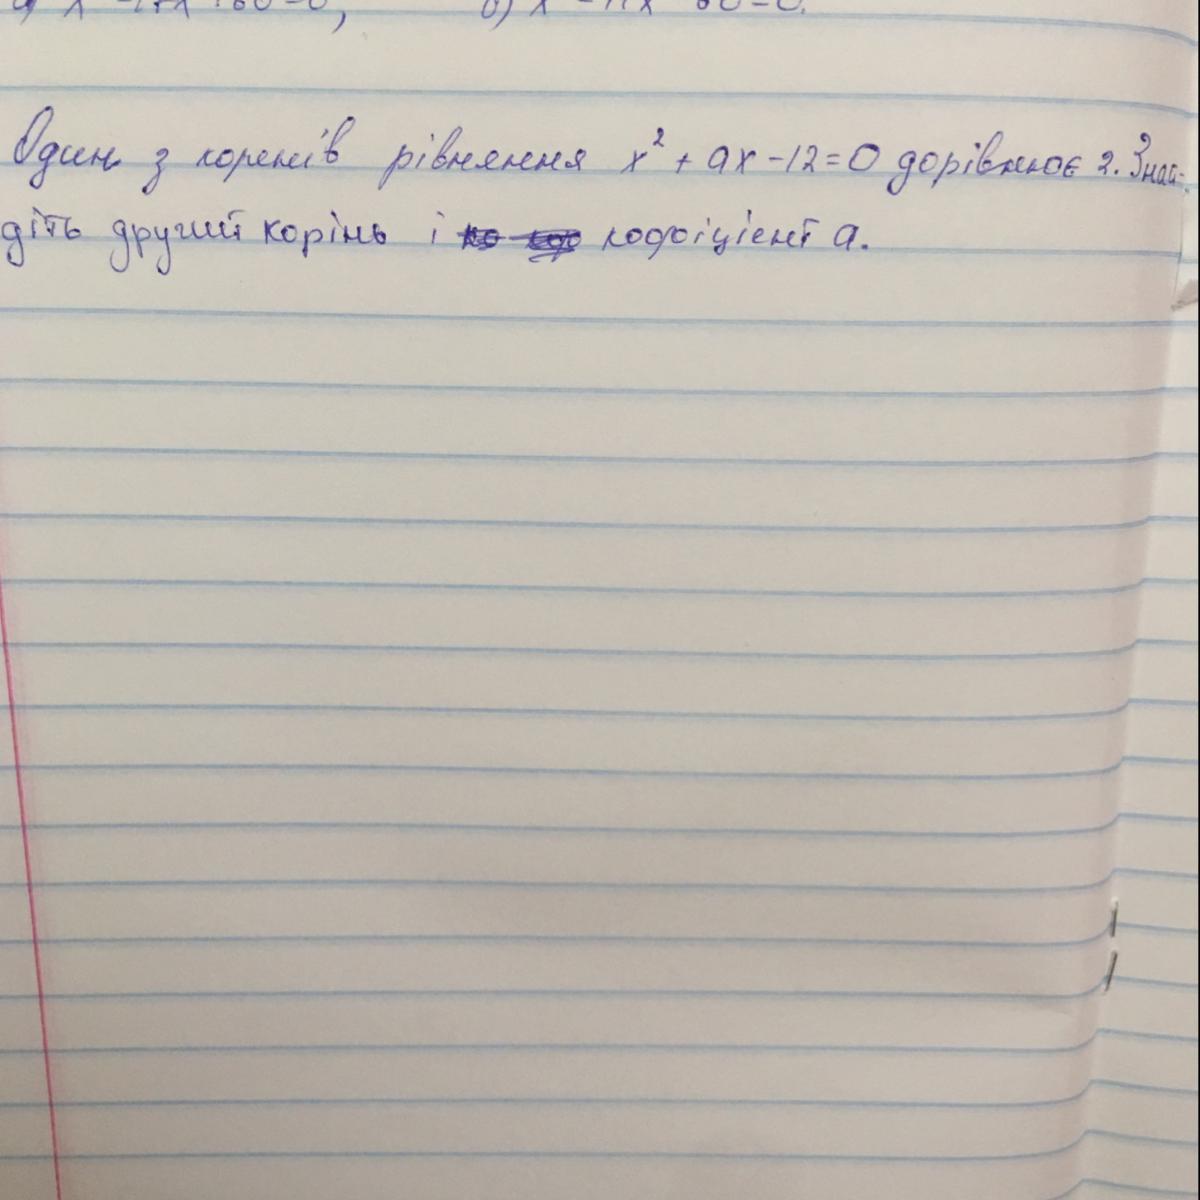 Один з коренів рівняння x² + ax - 12 = 0 дорівнює 2. Знай-
діть другий корінь і кофіцієнт a.